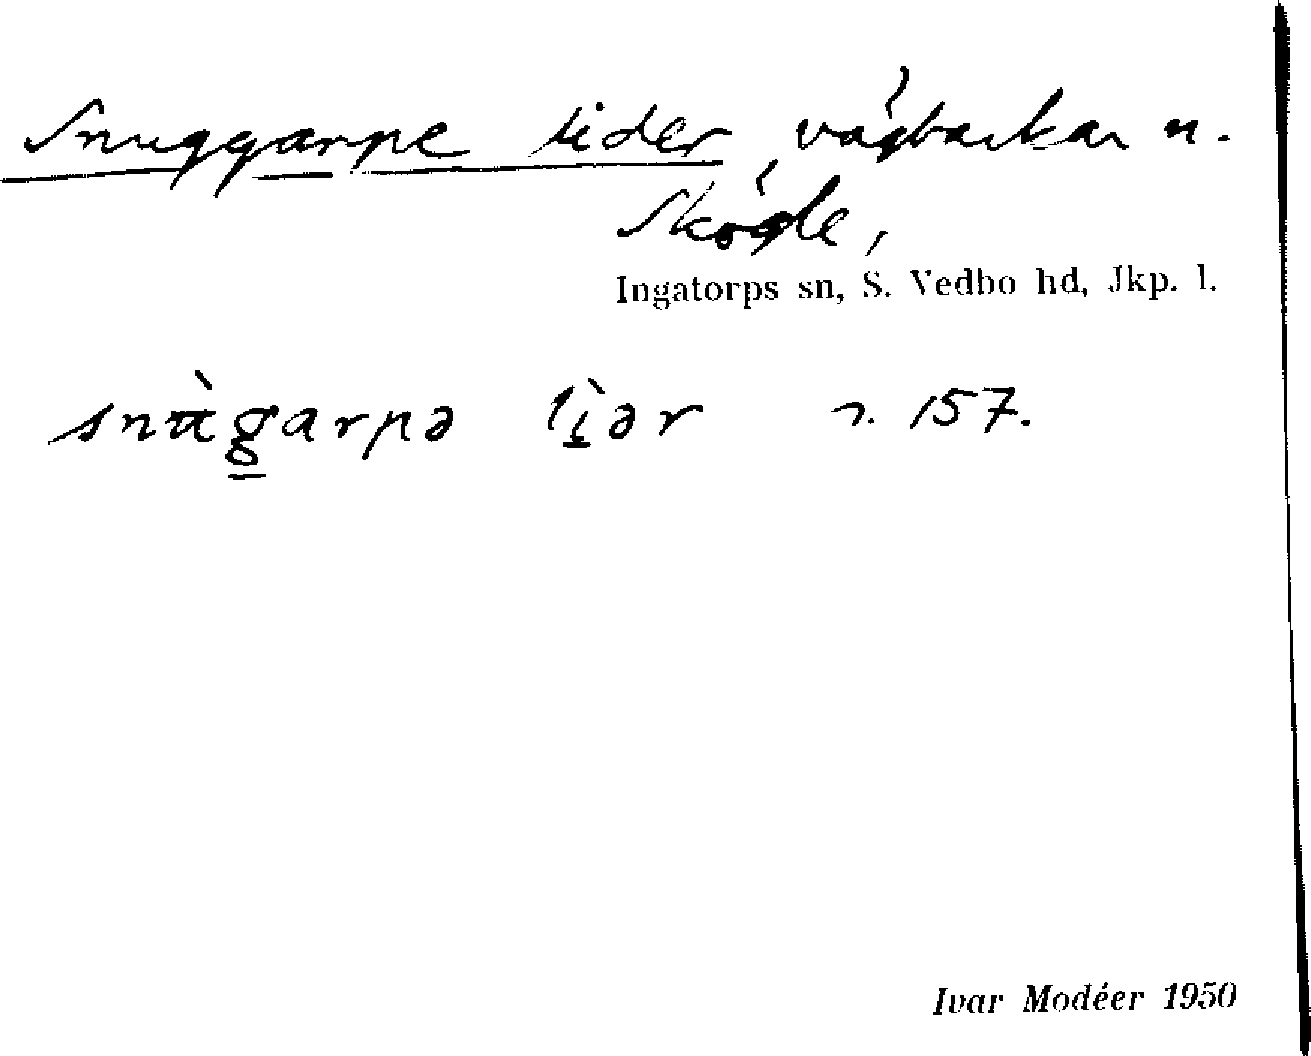 Snuggarpe lider, vägbackar n.
Skögle,
Ingatorps sn, S. Vedbo hd, Jkp. l.
r. 157.
Ivar Modéer 1950